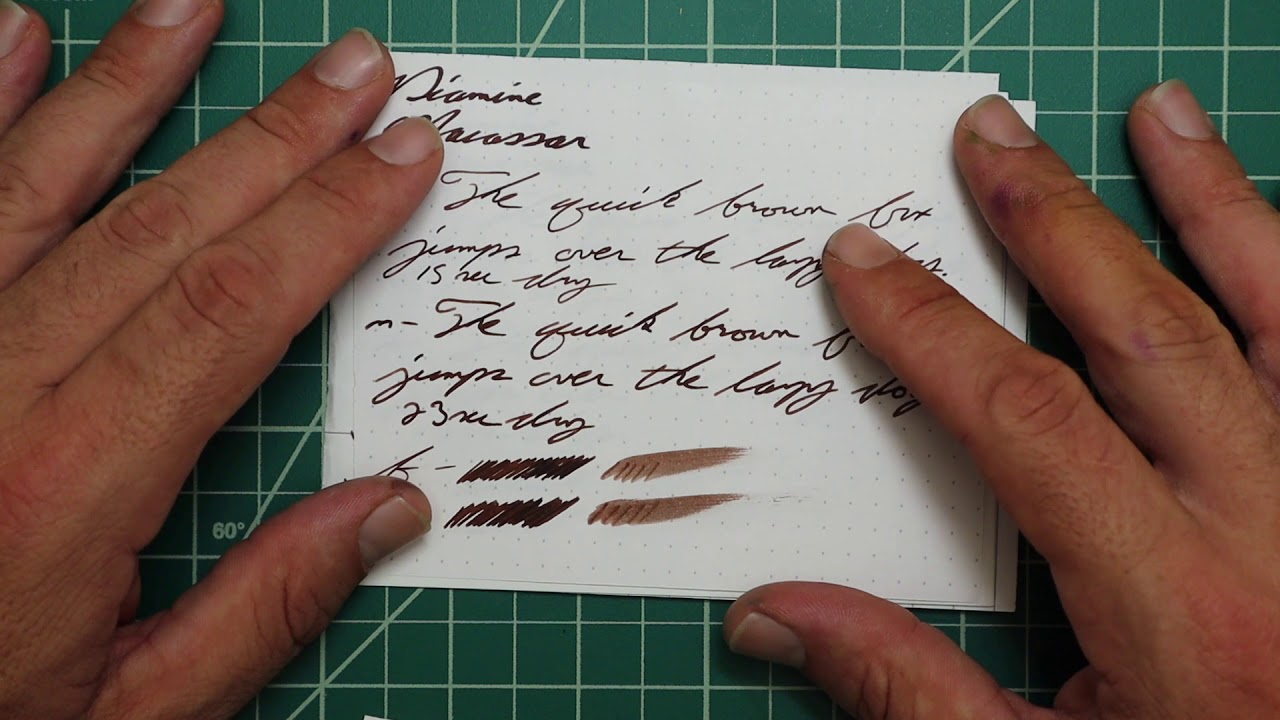 Diamine
Macassar
The quick brown fox
jumps over the lazy
15 sec dry
m- The quick brown
jumps over the lazy dog
23 sec dry
60°